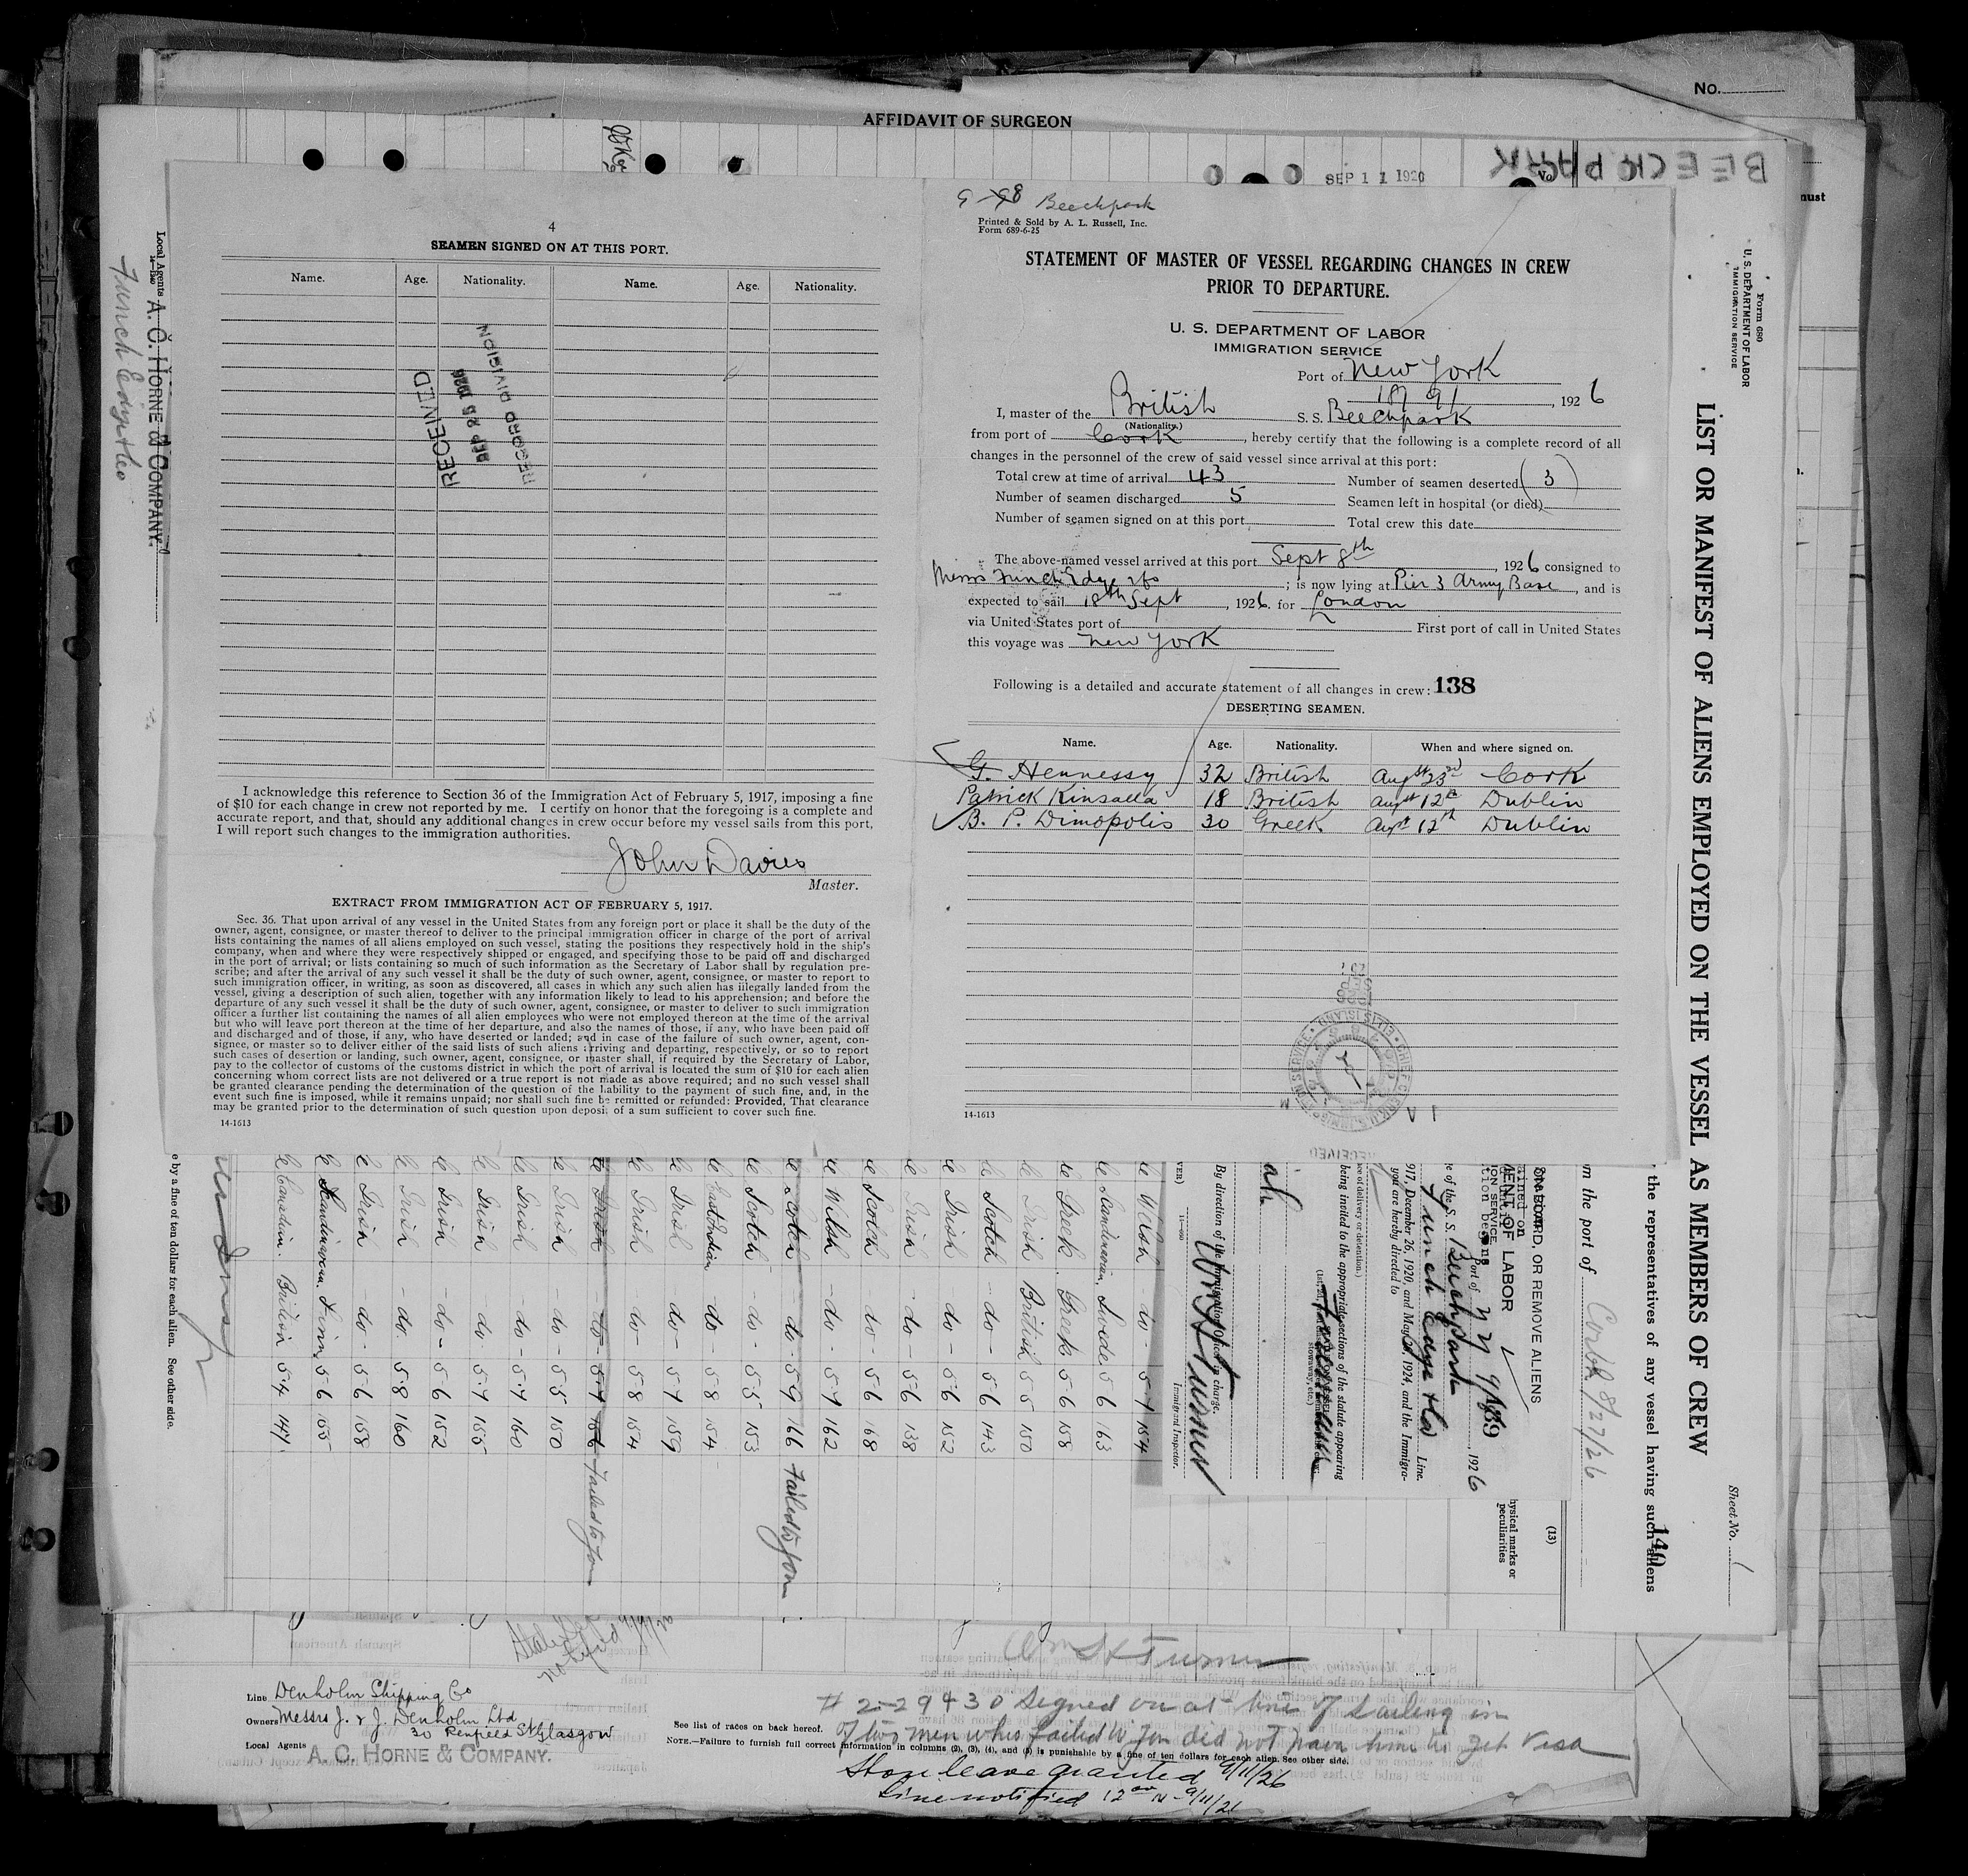 No.
AFFIDAVIT OF SURGEON
BEECHPARK
SEP 11 1926
4
SEAMEN SIGNED ON AT THIS PORT.
Name. Age. Nationality. Name. Age. Nationality.
RECEIVED
SEP 25 1926
RECORD DIVISION
I acknowledge this reference to Section 36 of the Immigration Act of February 5, 1917, imposing a fine
of $10 for each change in crew not reported by me. I certify on honor that the foregoing is a complete and
accurate report, and that, should any additional changes in crew occur before my vessel sails from this port,
I will report such changes to the immigration authorities.
John Davies
Master.
EXTRACT FROM IMMIGRATION ACT OF FEBRUARY 5, 1917.
Sec. 36. That upon arrival of any vessel in the United States from any foreign port or place it shall be the duty of the
owner, agent, consignee, or master thereof to deliver to the principal immigration officer in charge of the port of arrival
lists containing the names of all aliens employed on such vessel, stating the positions they respectively hold in the ship's
company, when and where they were respectively shipped or engaged, and specifying those to be paid off and discharged
in the port of arrival; or lists containing so much of such information as the Secretary of Labor shall by regulation pre-
scribe; and after the arrival of any such vessel it shall be the duty of such owner, agent, consignee, or master to report to
such immigration officer, in writing, as soon as discovered, all cases in which any such alien has illegally landed from the
vessel, giving a description of such alien, together with any information likely to lead to his apprehension; and before the
departure of any such vessel it shall be the duty of such owner, agent, consignee, or master to deliver to such immigration
officer a further list containing the names of all alien employees who were not employed thereon at the time of the arrival
but who will leave port thereon at the time of her departure, and also the names of those, if any, who have been paid off
and discharged and of those, if any, who have deserted or landed; and in case of the failure of such owner, agent, con-
signee, or master so to deliver either of the said lists of such aliens arriving and departing, respectively, or so to report
such cases of desertion or landing, such owner, agent, consignee, or master shall, if required by the Secretary of Labor,
pay to the collector of customs of the customs district in which the port of arrival is located the sum of $10 for each alien
concerning whom correct lists are not delivered or a true report is not made as above required; and no such vessel shall
be granted clearance pending the determination of the question of the liability to the payment of such fine, and, in the
event such fine is imposed, while it remains unpaid; nor shall such fine be remitted or refunded: Provided, That clearance
may be granted prior to the determination of such question upon deposit of a sum sufficient to cover such fine.
14-1613
Beechpark
Printed & Sold by A. L. Russell, Inc.
Form 689-6-25
STATEMENT OF MASTER OF VESSEL REGARDING CHANGES IN CREW
PRIOR TO DEPARTURE.
U. S. DEPARTMENT OF LABOR
IMMIGRATION SERVICE
Port of New York
, 1926
I, master of the British S. S. Beechpark
(Nationality.)
from port of Cork, hereby certify that the following is a complete record of all
changes in the personnel of the crew of said vessel since arrival at this port:
Total crew at time of arrival 43 Number of seamen deserted (3)
Number of seamen discharged 5 Seamen left in hospital (or died)
Number of seamen signed on at this port Total crew this date
The above-named vessel arrived at this port Sept 8th, 1926 consigned to
Messrs Funch Edye & Co; is now lying at Pier 3 Army Base, and is
expected to sail 18th Sept, 1926. for London
via United States port of First port of call in United States
this voyage was New York
Following is a detailed and accurate statement of all changes in crew: 138
DESERTING SEAMEN.
Name. Age. Nationality. When and where signed on.
G. Hennessy 32 British Augst 23rd Cork
Patrick Kinsalla 18 British Augst 12th Dublin
B. P. Dimopolis 30 Greek Augst 12th Dublin
14-1613
Local Agents A. C. HORNE & COMPANY.
Funch Edye & Co
e by a fine of ten dollars for each alien. See other side.
Canadian British 54 147
Scandinavian 56 155
Irish do 56 158
Irish do 58 160
Irish do 56 152
Irish do 57 155
Irish do 57 160
Irish do 55 150
Irish do 57 156 Failed to Join
Irish do 58 154
Irish do 57 159
East Indian do 58 154
Scotch do 55 153
Scotch do 59 166 Failed to Join
Welsh do 57 162
Scotch do 56 168
Irish do 56 138
Irish do 56 152
Scotch do 56 143
Irish British 55 150
Greek Greek 56 158
Scandinavian Swede 56 163
Welsh do 57 154
By direction of the immigration officer in charge.
Immigrant Inspector.
being invited to the appropriate sections of the statute appearing
917, December 26, 1920, and May 26, 1924, and the Immigra-
you are hereby directed to
Funch Edye & Co Line.
e of the S. S. Beechpark
ON BOARD, OR REMOVE ALIENS
MENT OF LABOR
ION SERVICE
139
1926
hysical marks or
peculiarities
(13)
Form 689
U. S. DEPARTMENT OF LABOR
IMMIGRATION SERVICE
LIST OR MANIFEST OF ALIENS EMPLOYED ON THE VESSEL AS MEMBERS OF CREW
Sheet No. 1
, the representatives of any vessel having such aliens
140
m the port of Cork 8/27/26
Wm H Turner
Line Denholm Shipping Co
Owners Messrs J. & J. Denholm Ltd
30 Renfield St Glasgow
Local Agents A. C. HORNE & COMPANY.
See list of races on back hereof.
NOTE.—Failure to furnish full correct information in columns (2), (3), (4), and (5) is punishable by a fine of ten dollars for each alien. See other side.
signed on at time of sailing in
of two men who failed to Join did not have time to get Visa
Shore leave granted 9/11/26
Line notified